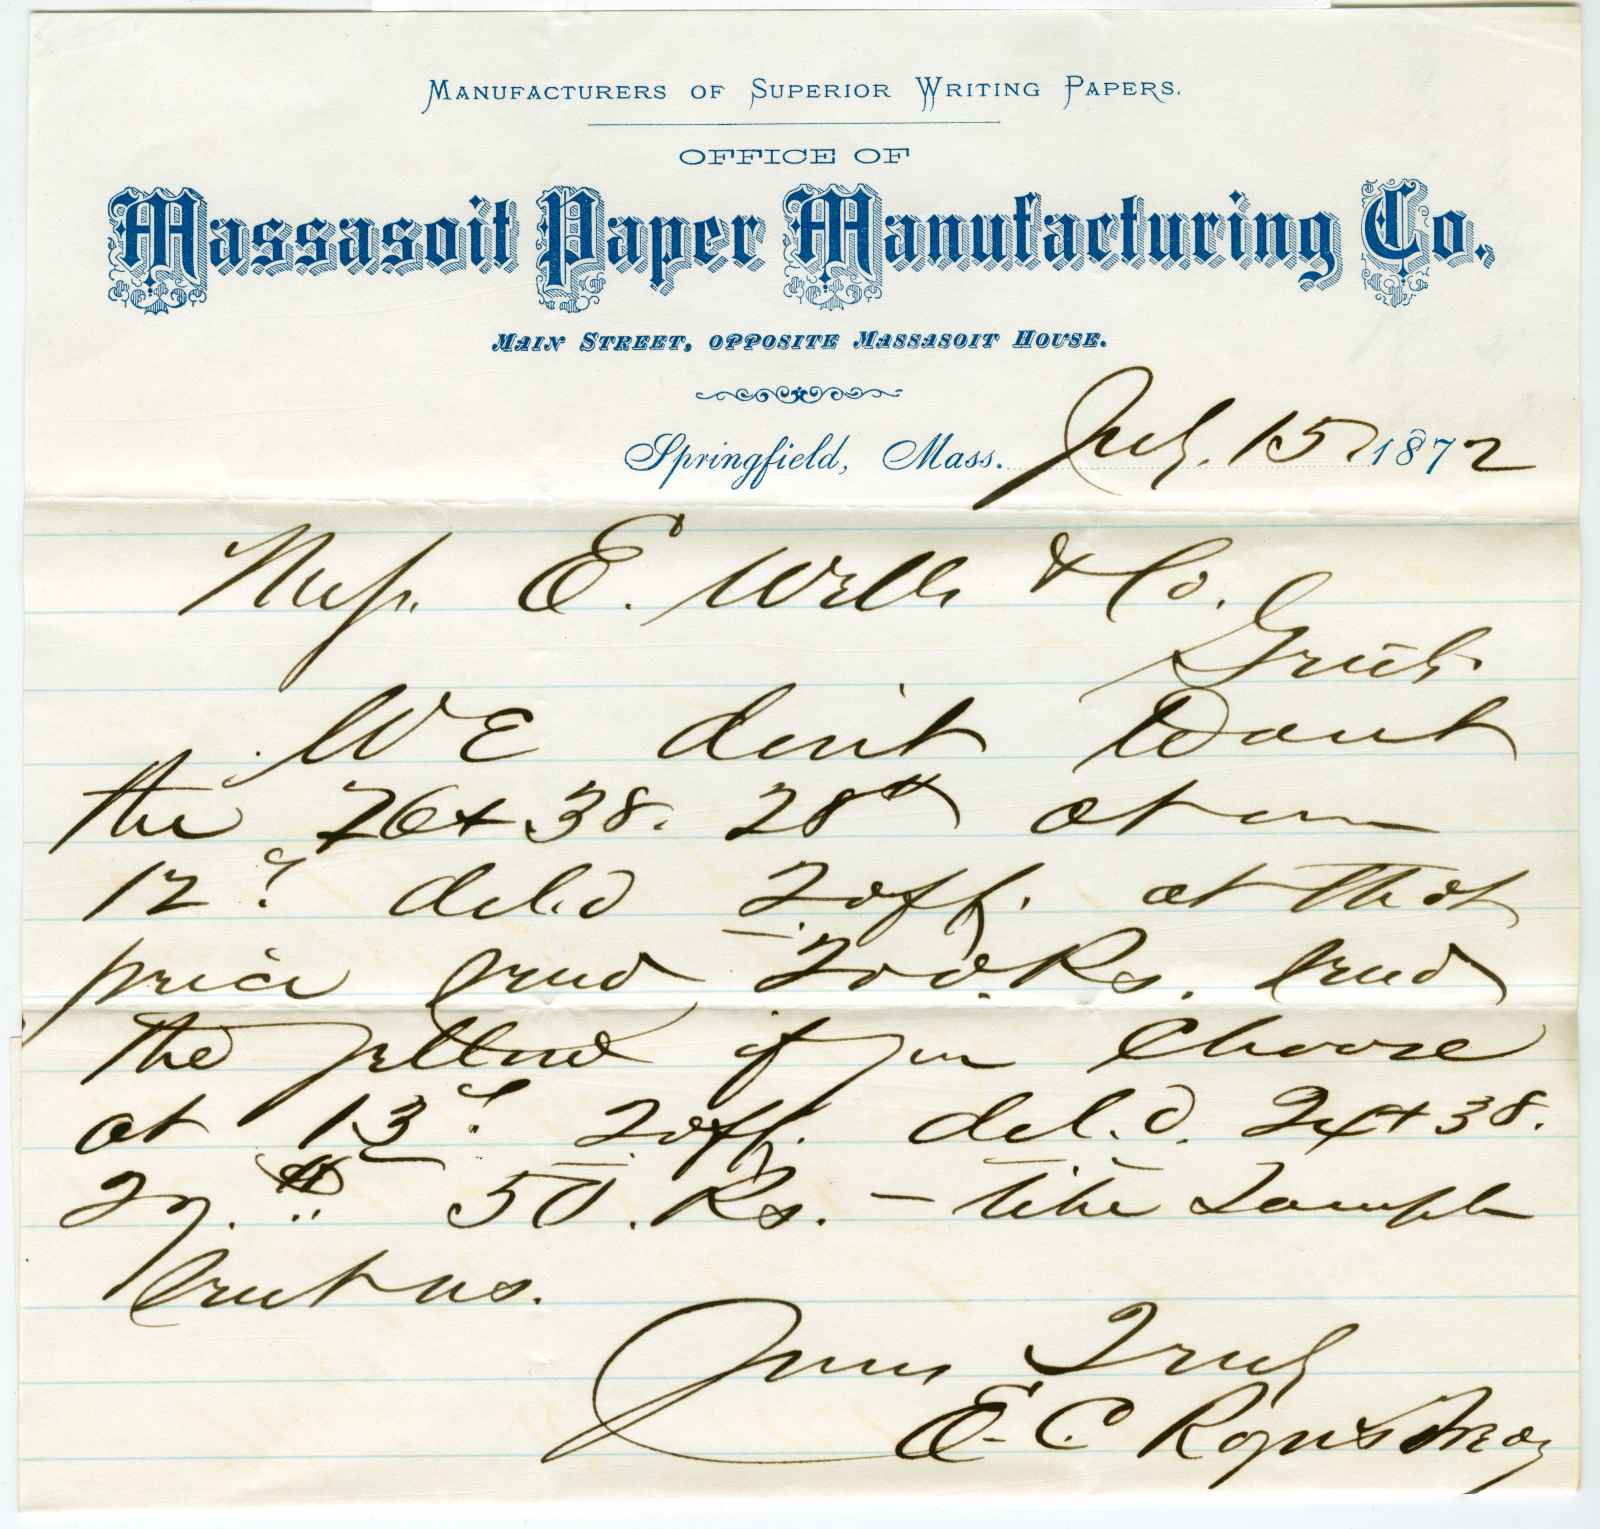 MANUFACTURERS OF SUPERIOR WRITING PAPERS.
OFFICE OF
Massasoit Paper Manufacturing Co.
MAIN STREET, OPPOSITE MASSASOIT HOUSE.
Springfield, Mass. July. 15 1872
Mess. E. Wells & Co.
Gents.
We don't want
the 26 x 38. 28 at
12 del.d 2 off. at that
price send 200. Rs. send
the yellow if you choose
at 13 2 off. del.d. 24 x 38.
50. Rs. - like sample
sent us.
Yours Truly
E. C. Rogers Treas